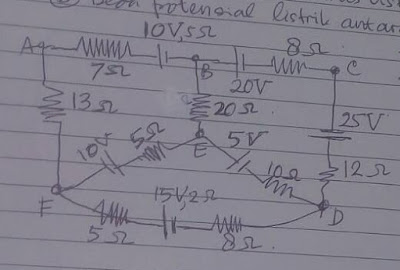 beda potensial listrik antar
10V,5Ω
A
B
8Ω
C
7Ω
20V
13Ω
20Ω
25V
5Ω
E
5V
10
10Ω
12Ω
F
15V,2Ω
D
5Ω
8Ω